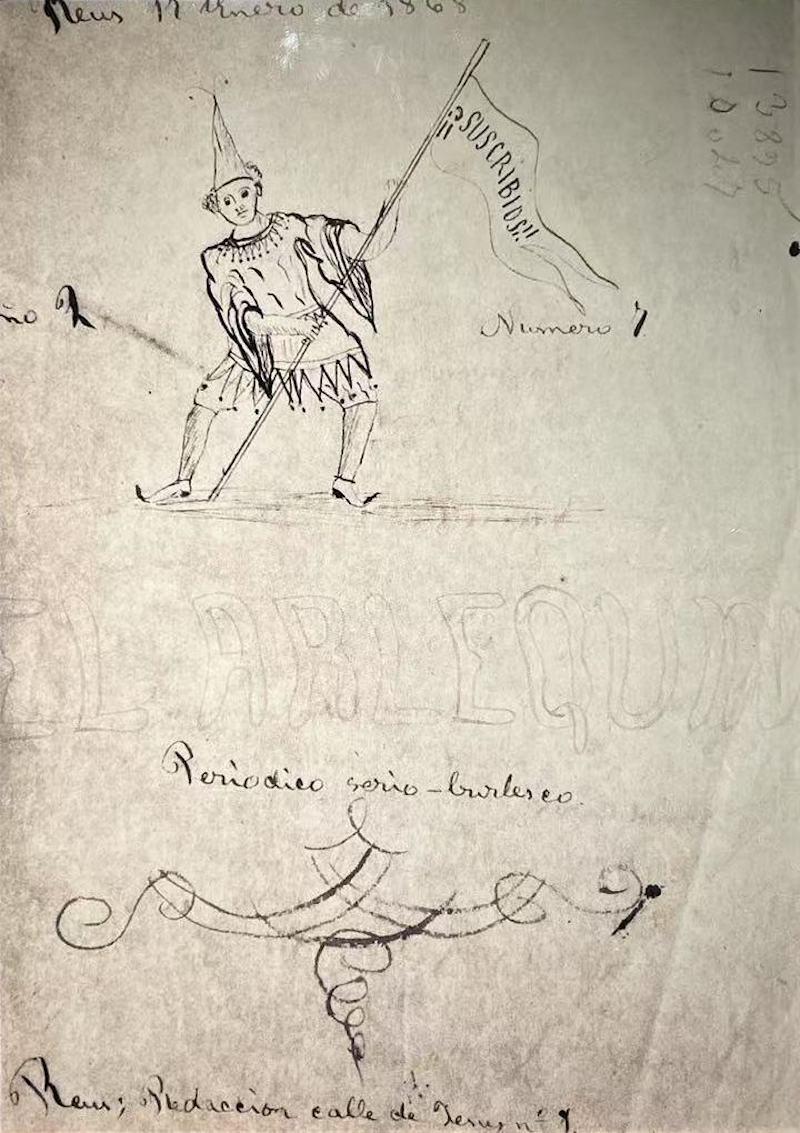 Reus Enero de 1868
¡¡SUSCRIBIOS!!
ño 1
Numero 1
EL ARLEQUIN
Periodico serio-burlesco.
Reus; Redaccion calle de Jesus nº 1.